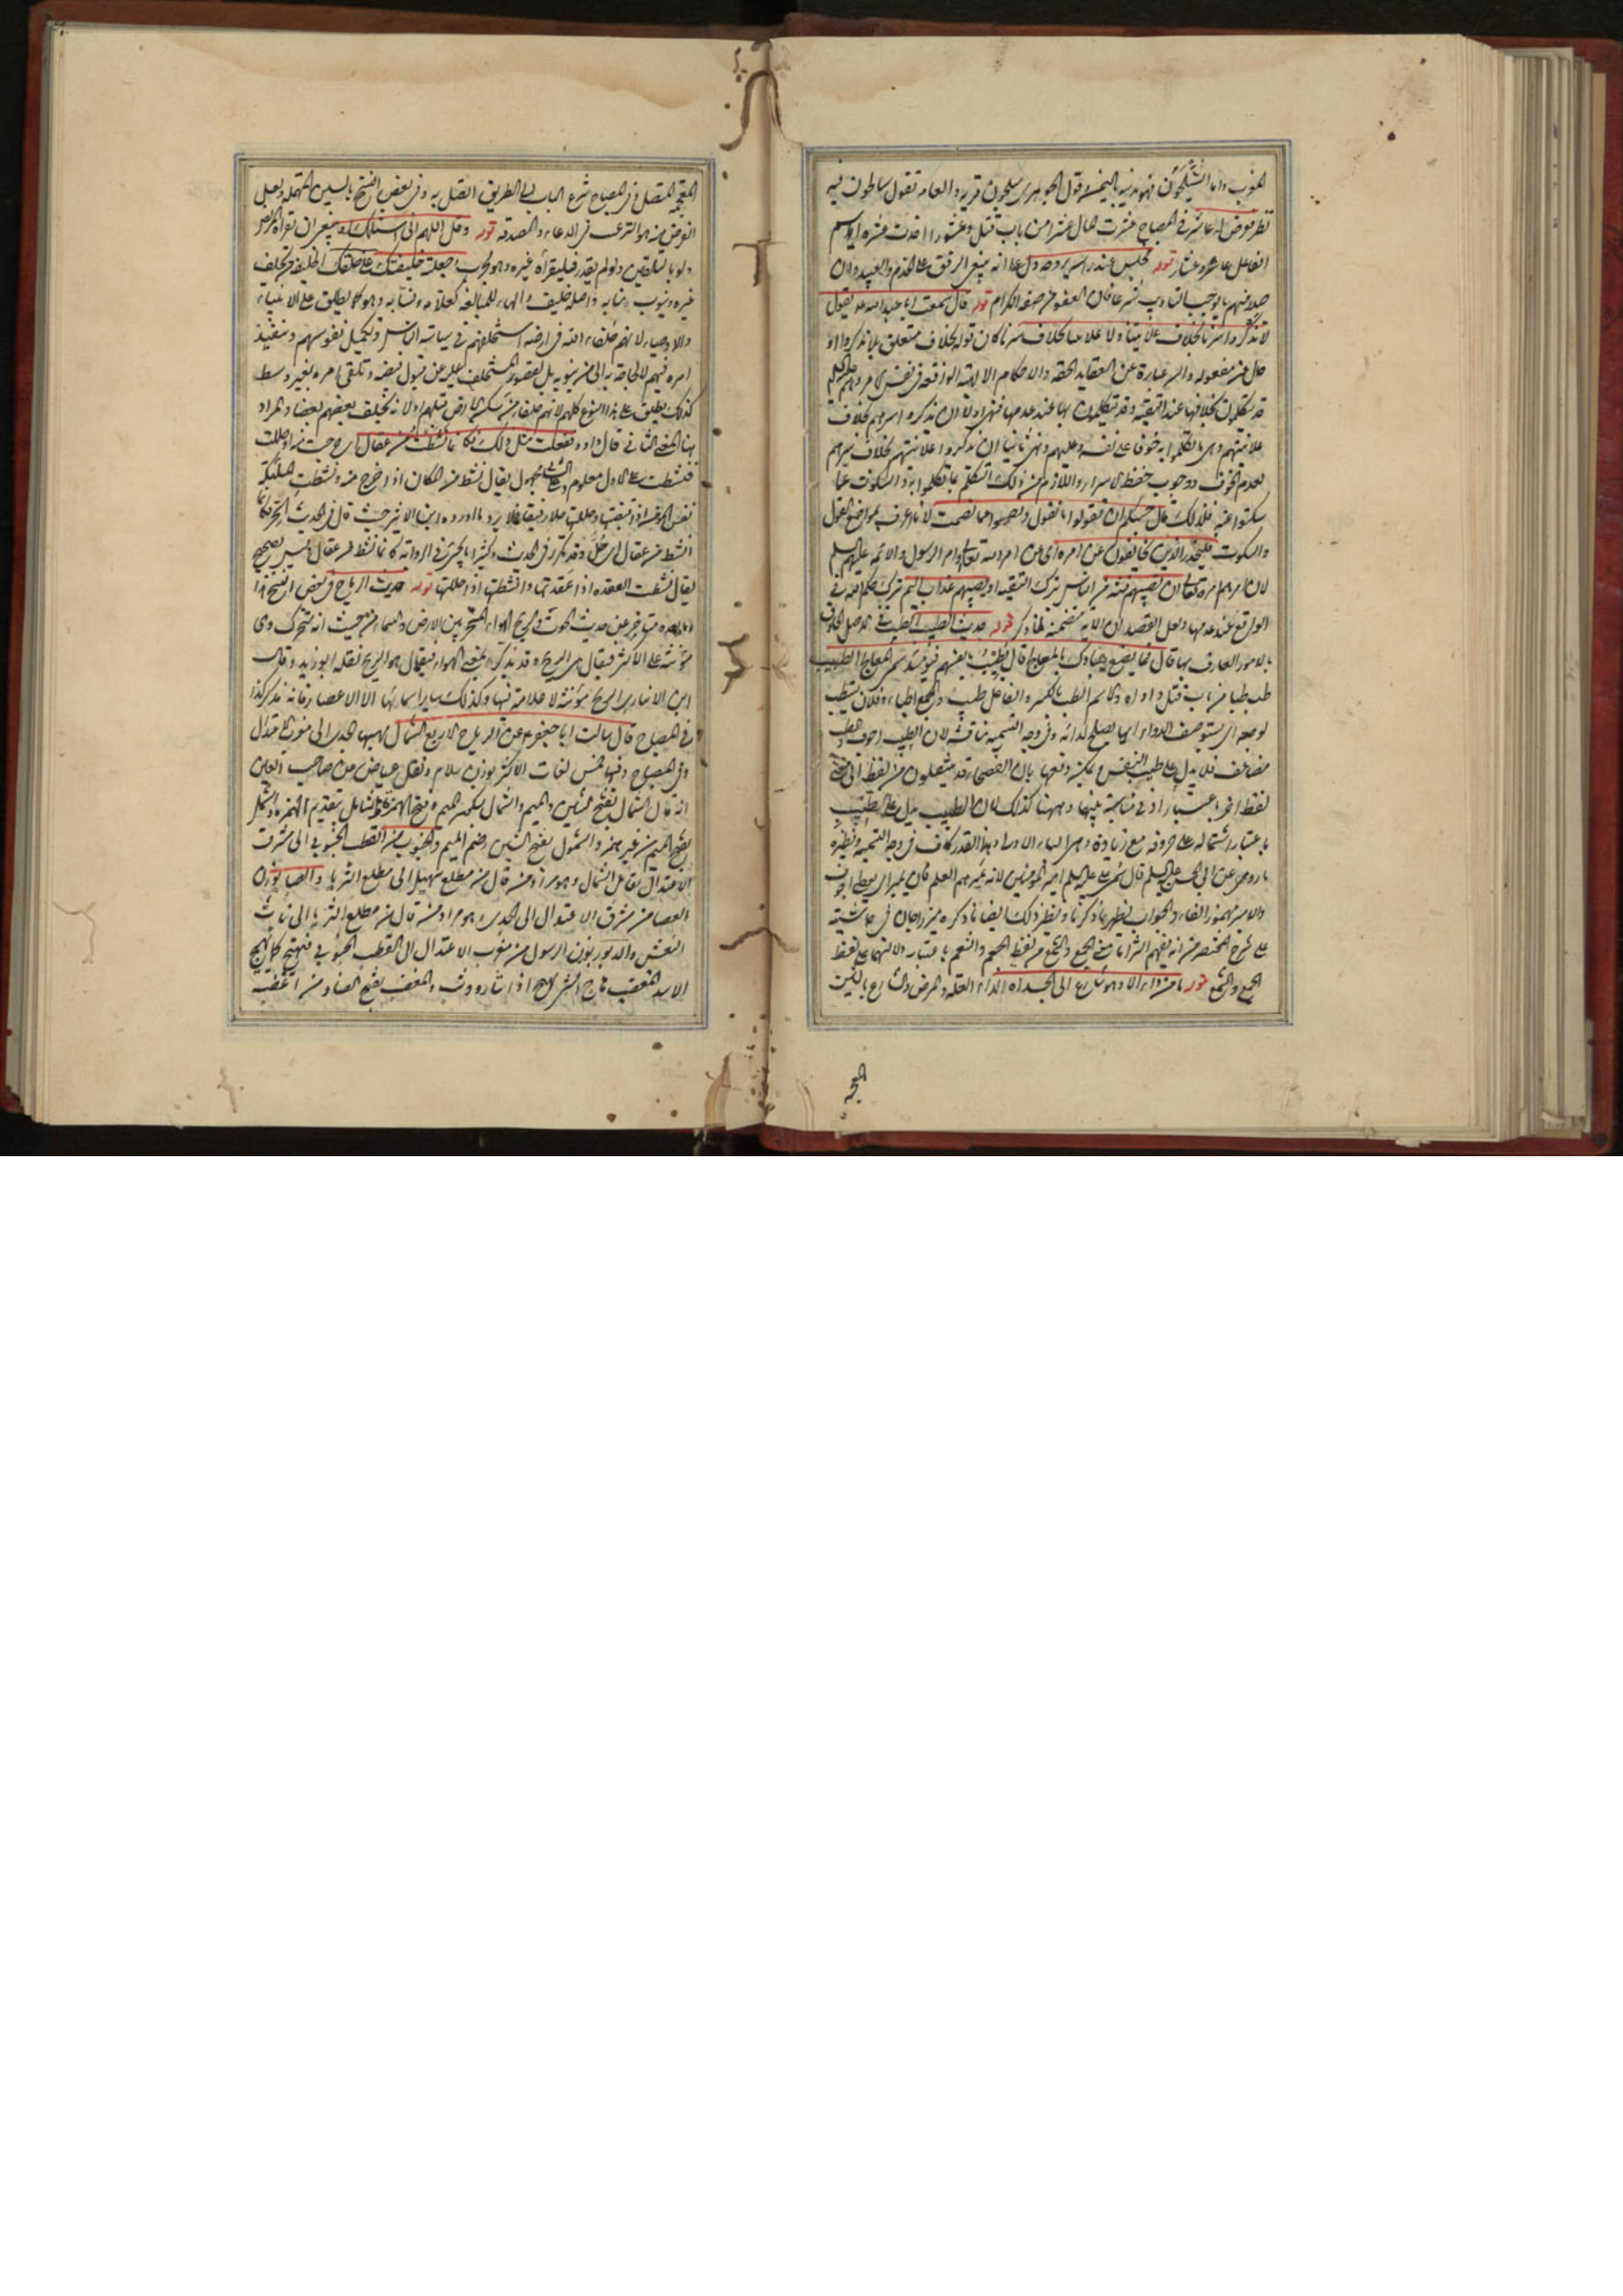 المغرب واما السَّيْلَحُون فهو مدينة باليمن وقول الجوهرى سيلحون قرية والعامة تقول سالحون فيه
نظر قوله عاشر فى المصباح عشرت المال عشرا من باب قتل وعشورا اخذت عشره واسم
الفاعل عاشر وعشار قوله فجلس عند راسه يروحه دل على انه ينبغى الرفق على الخدم والعبيد وان
صدر منهم ما يوجب التاديب شرعا فان العفو من صفة الكرام قوله قال سمعت ابا عبد الله يقول
لا تذكروا سرنا بخلاف علانيتنا ولا علانيتنا بخلاف سرنا كان قوله بخلاف متعلق بلا تذكروا او
حال عن مفعوله والسر عبارة عن العقايد الحقة والاحكام الالهية الواقعة فى نفس الامر وهم
قد يتكلمون بخلافها عند التقية وقد يتكلمون بها عند عدمها فنهى اولا ان يذكروا سرهم بخلاف
علانيتهم وهى ما تكلموا به خوفا على نفسه وعليهم ونهى ثانيا ان يذكروا علانيتهم بخلاف سرهم
لعدم الخوف ووجوب حفظ الاسرار واللازم من ذلك التكلم بما تكلموا به والسكوت عما
سكتوا عنه فلذلك قال حسبكم ان تقولوا ما نقول وتصمتوا عما نصمت لانا اعرف بمواضع القول
والسكوت فليحذر الذين يخالفون عن امره اى عن امر الله تعالى وامر الرسول والائمة عليهم السلم
لان امرهم امره تعالى ان تصيبهم فتنة من الناس بترك التقية او يصيبهم عذاب اليم بترك حكم الله فى
الواقع عند عدمها ولعل القصد ان الاية متضمنة لما ذكر قوله حديث الطبيب الطبيب فى الاصل الحاذق
بالامور العارف بها قال فما يصنع عبادك بالمعالج قال يُطَيِّبُ بانفسهم فيومئذ سمى المعالج الطبيب
طب طبا من باب قتل داواه والاسم الطب بالكسر والفاعل طبيب والجمع اطباء وفلان يستطب
لوجعه اى يستوصف الدواء ايها يصلح لدائه وفى وجه التسمية مناقشة لان الطيب اجوف والطب
مضاعف فلا يدل على طيب النفس ويمكن دفعها بان الفصحاء قد ينتقلون من لفظ الى معنى
لفظ اخر باعتبار ادنى مناسبة بينهما وههنا كذلك لان الطبيب يدل على الطيب
باعتبار اشتماله على حروفه مع زيادة وهى الباء الاولى وهذا القدر كاف فى وجه التسمية ونظيره
ما روى عن ابى الحسن عليه السلم قال سمى على عليه السلم امير المؤمنين لانه يميرهم العلم فان يمير اجوف
والامير مهموز الفاء والجواب يظهر بما ذكرنا ونظير ذلك ايضا ما ذكره ميرزا جان فى حاشيته
على شرح المختصر من انه يفهم الثريا من الجمع من لفظ النجم
الجمع والشمع قوله ما من داء الا وهو شارع الى الجسد اه الداء العلة والمرض والشارع بالشين
المعجمة المتصل وفى المصباح شرع الباب الى الطريق اتصل به وفى بعض النسخ بالسين المهملة ولعل
الغرض منه هو الترغيب فى الدعاء والصدقة قوله وقل اللهم انى اسئلك اه ينبغى ان يقراه المريض
ولو بالتلقين ولو لم يقدر فليقراه غيره وهو مجاب جعلته خليفتك على خلقك الخليفة من يخلف
غيره وينوب منابه واصله خليف والهاء للمبالغة كعلامة ونسابة وهو كما يطلق على الانبياء
والاوصياء لانهم خلفاء الله فى ارضه استخلفهم فى سياسة الناس وتكميل نفوسهم وتنفيذ
امره فيهم لا لحاجة به الى من ينوبه بل لقصور المستخلف عليه عن قبول فيضه وتلقى امره بغير وسط
كذلك يطلق على هذا النوع كلهم لانهم خلفاء من سكن الارض قبلهم او لانه يخلف بعضهم بعضا والمراد
هنا المعنى الثانى قال داود ففعلت مثل ذلك فكانما نشطت من عقال اى خرجت منه او حللت
فنشطت على الاول معلوم وعلى الثانى مجهول يقال نشط من المكان اذا خرج منه ونشطت
انشط من عقال اى حُلَّ وقد تكرر فى الحديث وكثيرا ما يجرى فى الرواية كانما نشط من عقال وليس بصحيح
يقال نشطت العقدة اذا عقدتها وانشطتها اذا حللتها قوله حديث الرياح فى بعض النسخ هذا
متاخر عن حديث الحوت والريح الهواء المسخر بين الارض والسماء من حيث انه متحرك وهى
مؤنثة على الاكثر فيقال هى الريح وقد تذكر بمعنى الهواء فيقال هو الريح نقله ابو زيد وقال
ابن الانبارى الريح مؤنثة لا علامة فيها وكذلك ساير اسمائها الا الاعصار فانه مذكر كذا
فى المصباح قال سالت ابا جعفر عن الرياح الاربع الشمال مهبها الجدى الى مغرب الاعتدال
وفى المصباح وفيها خمس لغات الاكثر بوزن سلام ونقل عياض عن صاحب العين
انه قال الشمال بفتح الشين والميم والشمال بسكون الميم وفتح الهمزة والشامل بتقديم الهمزة والشمل
بفتح الميم من غير همز والشمول بفتح الشين وضم الميم والجنوب من القطب الجنوبى الى مشرق
الاعتدال تقابل الشمال وهو مراد من قال من مطلع سهيل الى مطلع الثريا والصبا بوزن
العصا من مشرق الاعتدال الى الجدى وهو مراد من قال من مطلع الثريا الى بنات
النعش والدبور بوزن الرسول من مغرب الاعتدال الى القطب الجنوبى فتهيج كما يهيج
الاسد المغضب هاج الشى يهيج اذا ثار ووثب والمغضب بفتح الضاد من اغضبه
المعجمة